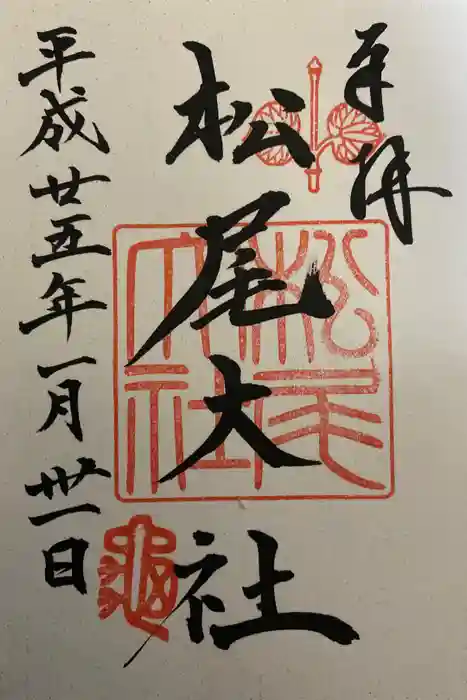 奉拝
松尾大社
平成廿五年一月卅一日
松尾大社
亀